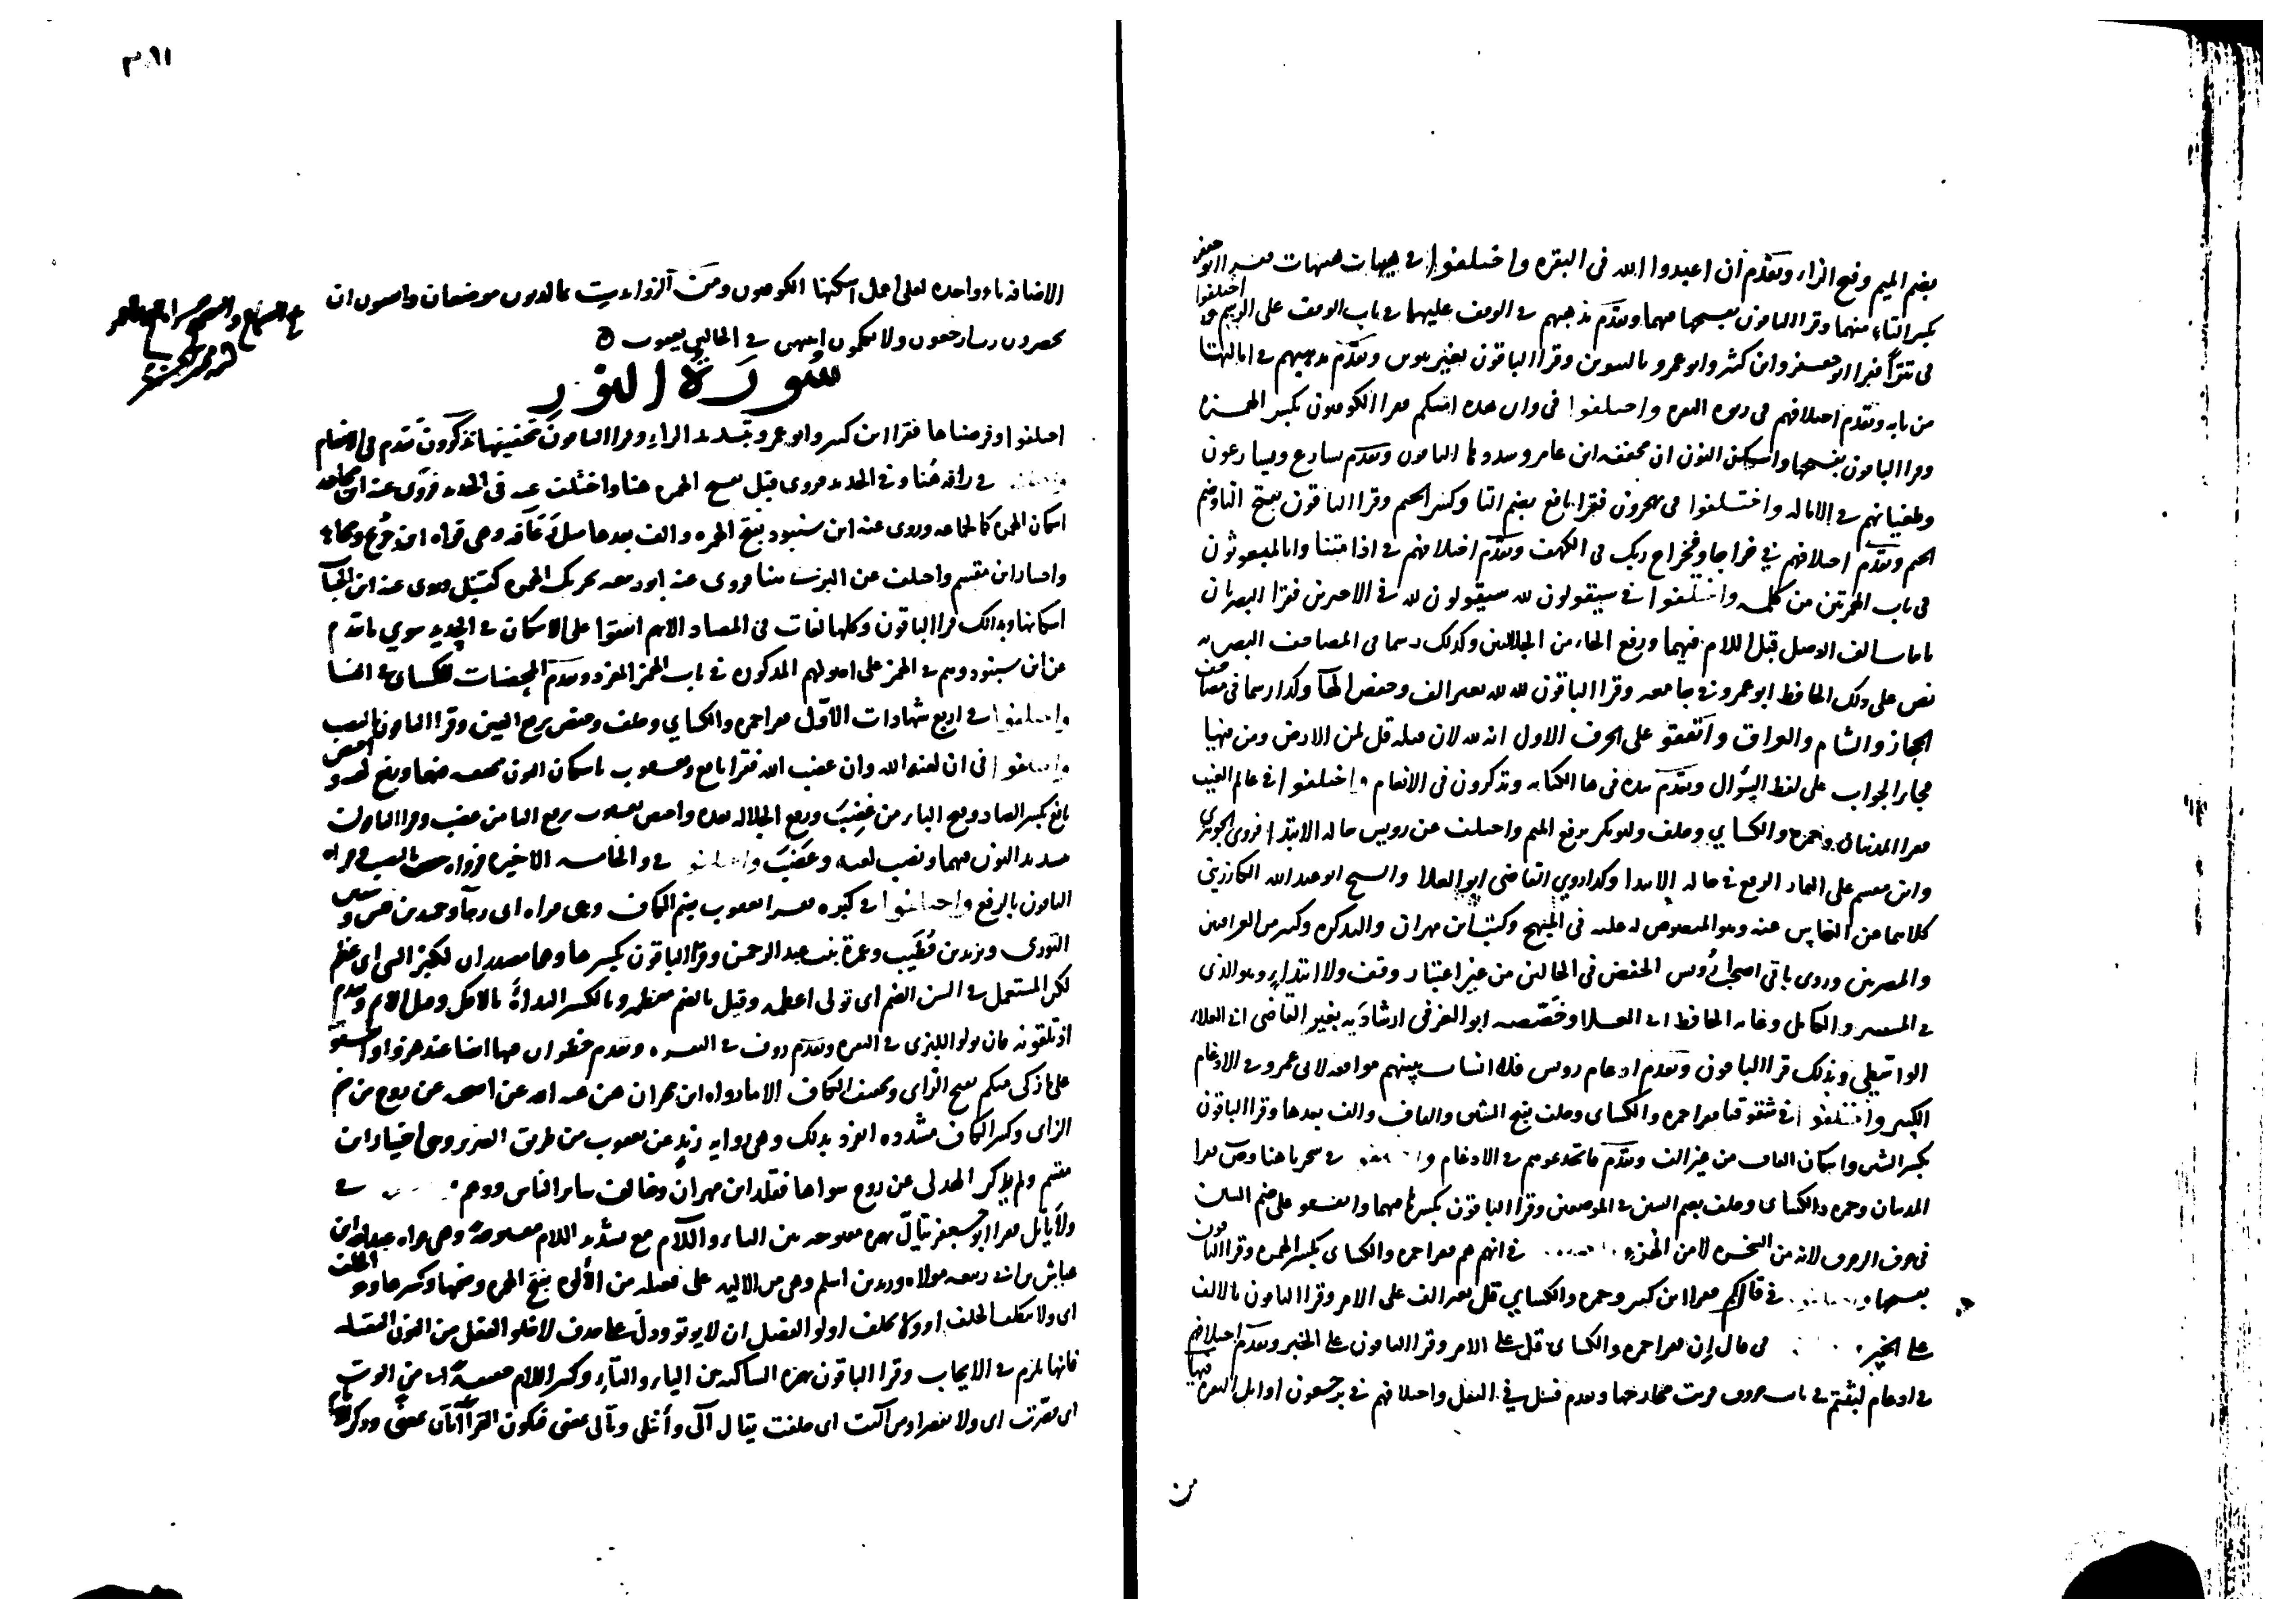 بضم الميم وفتح الزاء وتقدم ان اعبدوا الله فى البقره واختلفوا فى هيهات هيهات فقرا ابو جعفر
بكسر التاء منهما وقرا الباقون بفتحها فيهما وتقدم مذهبهم فى الوقف عليهما فى باب الوقف على الرسم واختلفوا
فى تترا فقرا ابو جعفر وابن كثير وابو عمرو بالتنوين وقرا الباقون بغير تنوين وتقدم مذهبهم فى امالتها
من بابه وتقدم اختلافهم فى ربوه البقره واختلفوا فى وان هذه امتكم فقرا الكوفيون بكسر الهمزه
وقرا الباقون بفتحها واسكن النون ان مخففه ابن عامر وشددها الباقون وتقدم سارع ويسارعون
وطغيانهم فى الاماله واختلفوا فى تهجرون فقرا نافع بضم التا وكسر الجيم وقرا الباقون بفتح التا وضم
الجيم وتقدم اختلافهم فى خراجا وفخراج ربك فى الكهف وتقدم اختلافهم فى اذا متنا وانا لمبعوثون
فى باب الهمزتين من كلمه واختلفوا فى سيقولون لله سيقولون لله فى الاخرين فقرا البصريان
باثبات الف الوصل قبل اللام فيهما ورفع الهاء من الجلالتين وكذلك رسما فى المصاحف البصريه
نص على ذلك الحافظ ابو عمرو فى جامعه وقرا الباقون لله لله بغير الف وخفض الها وكذا رسما فى مصاحف
الحجاز والشام والعراق واتفقوا على الحرف الاول انه لله لان قبله قل لمن الارض ومن فيها
فجاء الجواب على لفظ السؤال وتقدم بيده فى ها الكنايه وتذكرون فى الانعام واختلفوا فى عالم الغيب
فقرا المدنيان وحمزه والكساي وخلف وابو بكر برفع الميم واختلف عن رويس حاله الابتدا فروى الجوهرى
وابن مقسم على التمار الرفع فى حاله الابتدا وكذا روى القاضى ابو العلا والشيخ ابو عبد الله الكارزينى
كلاهما عن النخاس عنه وهو المنصوص له عليه فى المبهج وكتب ابن مهران والتذكره وكثير من العراقيين
والمصريين وروى باقى اصحاب رويس الخفض فى الحالين من غير اعتبار وقف ولا ابتداء وهو الذى
فى المستنير والكامل وغايه الحافظ ابى العلا وخصصه ابو العز فى ارشاديه بغير القاضى ابى العلاء
الواسطى وبذلك قرا الباقون وتقدم ادغام رويس فلا انساب بينهم موافقه لابى عمرو فى الادغام
الكبير واختلفوا فى شقوتنا فقرا حمزه والكساى وخلف بفتح الشين والقاف والف بعدها وقرا الباقون
بكسر الشين واسكان القاف من غير الف وتقدم فاتخذتموهم فى الادغام واختلفوا فى سخريا هنا وص فقرا
المدنيان وحمزه والكساى وخلف بضم السين فى الموضعين وقرا الباقون بكسرها فيهما واتفقوا على ضم السين
فى حرف الزخرف لانه من السخره لا من الهزء فى انهم هم فقرا حمزه والكساى بكسر الهمزه وقرا الباقون
بفتحها فى قال كم فقرا ابن كثير وحمزه والكساي قل بغير الف على الامر وقرا الباقون بالالف
على الخبر فى قال ان فقرا حمزه والكساى قل على الامر وقرا الباقون على الخبر وتقدم اختلافهم
فى ادغام لبثتم فى باب حروف قربت مخارجها وتقدم فسل فى النقل واختلافهم فى ترجعون اوايل البقره فيها
من
٣٠١١
الاضافه ياء واحده لعلى اعمل اسكنها الكوفيون ومن الزوائد ست بما كذبون موضعان فاتقون ان
يحضرون رب ارجعون ولا تكلمون اثبتهن فى الحالين يعقوب ه
سورة النور
اختلفوا فى وفرضناها فقرا ابن كثير وابو عمرو بتشديد الراء وقرا الباقون بتخفيفها تذكرون تقدم فى الانعام
فى رافه هنا وفى الحديد فروى قنبل بفتح الهمزه هنا واختلف عنه فى الحديد فروى عنه ابن مجاهد
اسكان الهمزه كالجماعه وروى عنه ابن شنبوذ بفتح الهمزه والف بعدها مثل رعافه وهى قراه ابن جريج ومجاهد
واختيار ابن مقسم واختلف عن البزى هنا فروى عنه ابو ربيعه تحريك الهمزه كقنبل وروى عنه ابن الحباب
اسكانها وبذلك قرا الباقون وكلها لغات فى المصادر الا انهم اتفقوا على الاسكان فى الحديد سوي ما تقدم
عن ابن شنبوذ وهم فى الهمز على اصولهم المذكوره فى باب الهمز المفرد وتقدم المحصنات للكساى فى النسا
واختلفوا فى اربع شهادات الاول فقرا حمزه والكساي وخلف وحفص برفع العين وقرا الباقون بالنصب
واختلفوا فى ان لعنه الله وان غضب الله فقرا نافع ويعقوب باسكان النون مخففه فيهما ورفع لعنه واختص
نافع بكسر الضاد وفتح الباء من غضب ورفع الجلاله بعده واختص يعقوب برفع البا من غضب وقرا الباقون
بتشديد النون فيهما ونصب لعنه وغضب واختلفوا فى والخامسه الاخيره فرواه حفص بالنصب وقراه
الباقون بالرفع واختلفوا فى كبره فقرا يعقوب بضم الكاف وهى قراه ابى رجاء وحميد بن قيس وسفين
الثورى ويزيد بن قطيب وعمرة بنت عبد الرحمن وقرا الباقون بكسرها وهما مصدران لكبر الشى اى عظم
لكن المستعمل فى السن الضم اى تولى اعظمه وقيل بالضم معظمه وبالكسر البداءة بالافك وقيل الاثم وتقدم
اذ تلقونه فان تولوا للبزى فى البقره وتقدم روف فى البقره وتقدم خطوات فيها ايضا عند هزوا واتفقوا
على ما زكى منكم بفتح الزاى وتخفيف الكاف الا ما رواه ابن مهران عن هبه الله عن اصحابه عن روح من ضم
الزاى وكسر الكاف مشدده انفرد بذلك وهى روايه زيد عن يعقوب من طريق الضرير وهى اختيار ابن
مقسم ولم يذكر الهذلى عن روح سواها فقلد ابن مهران وخالف ساير الناس ووهم فى
ولا ياتل فقرا ابو جعفر يتال بهمزه مفتوحه بين التاء واللام مع تشديد اللام مفتوحة وهى قراه عبد الله بن
عياش بن ابى ربيعه مولاه وزيد بن اسلم وهى من الاليه على فعيله من الألوه بفتح الهمزه وضمها وكسرها وهو الحلف
اى ولا يتكلف الحلف او ولا يحلف اولو الفضل ان لا يوتوا ودل على حذف لا خلو الفعل من النون الثقيله
فانها تلزم فى الايجاب وقرا الباقون بهمزه ساكنه بين الياء والتاء وكسر اللام خفيفة اما من الوت
اى قصرت اى ولا تقصر او من اليت اى حلفت يقال آلى وأتلى وتآلى بمعنى فتكون القراآتان بمعنى وذكر